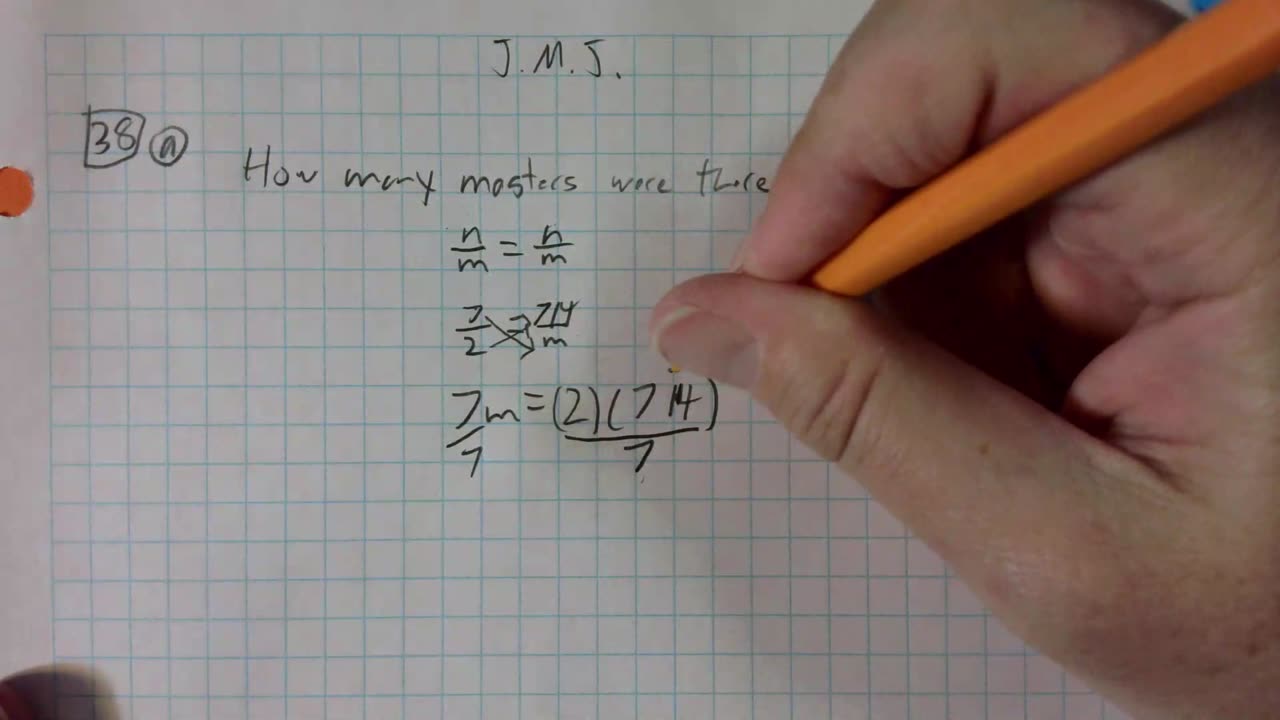 J.M.J.
38 a How many masters were there
n/m = n/m
7/2 = 714/m
7m = (2)(714)
7 7